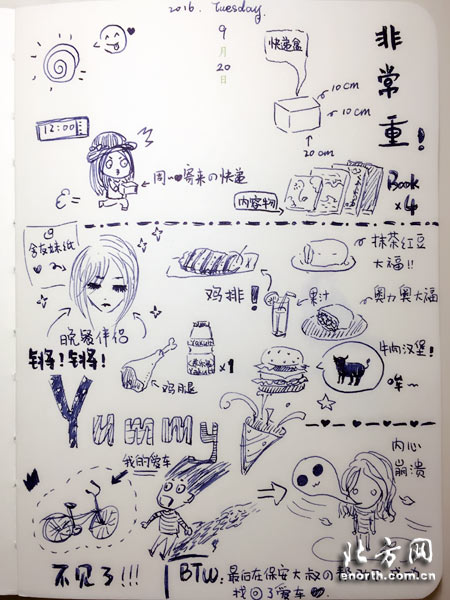 2016. Tuesday.
9
月
20
日
快递盒
非常重!
10 cm
10 cm
20 cm
12:00
周一♥寄来的快递
内容物
Book
×4
抹茶红豆
大福!!
鸡排!
果汁
奥力奥大福
晚餐伴侣
锵!锵!
鸡腿
×1
牛肉汉堡!
哞~
Yummy
我的爱车
内心
崩溃
不见了!!!
BTW:最后在保安大叔の
找回了爱车
北方网
enorth.com.cn